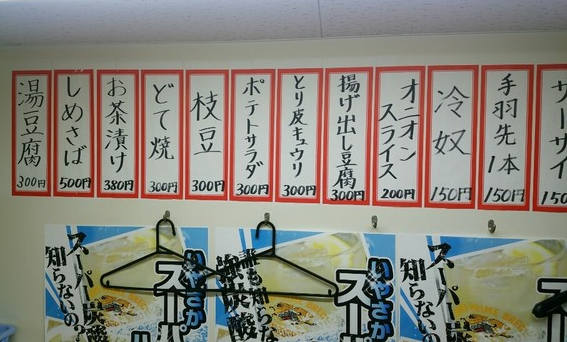 湯豆腐
300円
しめさば
500円
お茶漬け
380円
どて焼
300円
枝豆
300円
ポテトサラダ
300円
とり皮キュウリ
300円
揚げ出し豆腐
300円
オニオン
スライス
200円
冷奴
150円
手羽先
1本
150円
サーサイ
150
スーパー炭酸
知らないの?
いやさか
スーパ
誰も知らな
強炭酸
いやさか
スーパ
スーパー炭酸
知らないの?